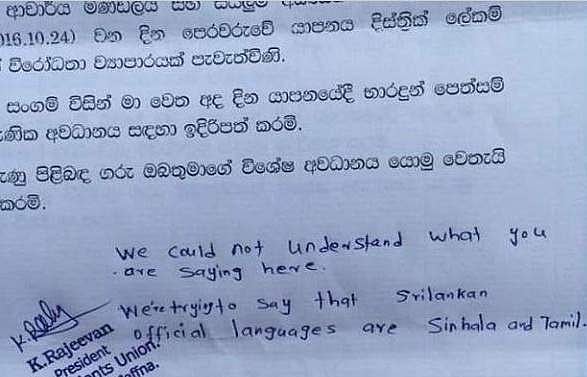 ආචාර්ය මණ්ඩලය සහ
016.10.24) වන දින පෙරවරුවේ යාපනය දිස්ත්‍රික් ලේකම්
විරෝධතා ව්‍යාපාරයක් පැවැත්විණි.
සංගම් විසින් මා වෙත අද දින යාපනයේදී භාරදුන් පෙත්සම්
අවධානය සඳහා ඉදිරිපත් කරමි.
පිළිබඳ ගරු ඔබතුමාගේ විශේෂ අවධානය යොමු වෙතැයි
කරමි.
We could not understand what you
are saying here.
We're trying to say that Srilankan
official languages are Sinhala and Tamil.
K.Rajeevan
President
ents Union
affna.